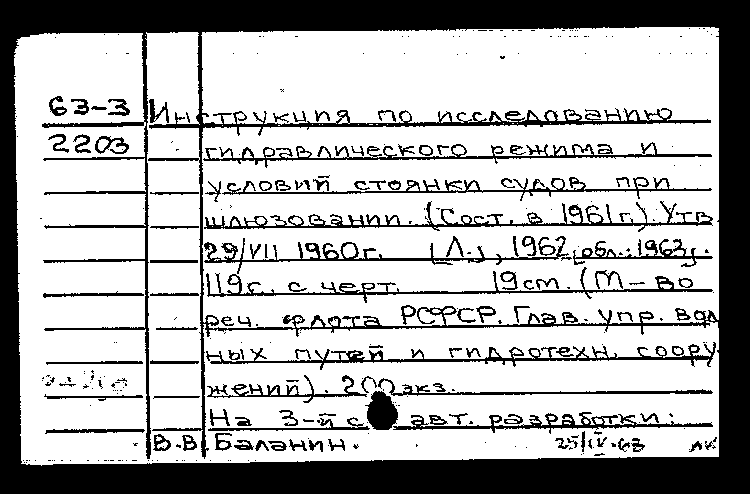 63-3 Инструкция по исследованию
2203 гидравлического режима и
условий стоянки судов при
шлюзовании. (Сост. в 1961г.). Утв
29/VII 1960г. [Л.], 1962 [обл.: 1963].
119с. с черт. 19см. (М-во
реч. флота РСФСР. Глав. упр. вод
ных путей и гидротехн. соору
жений). 200 экз.
На 3-й с авт. разработки:
В.В. Баланин. 25/IV-63 АК